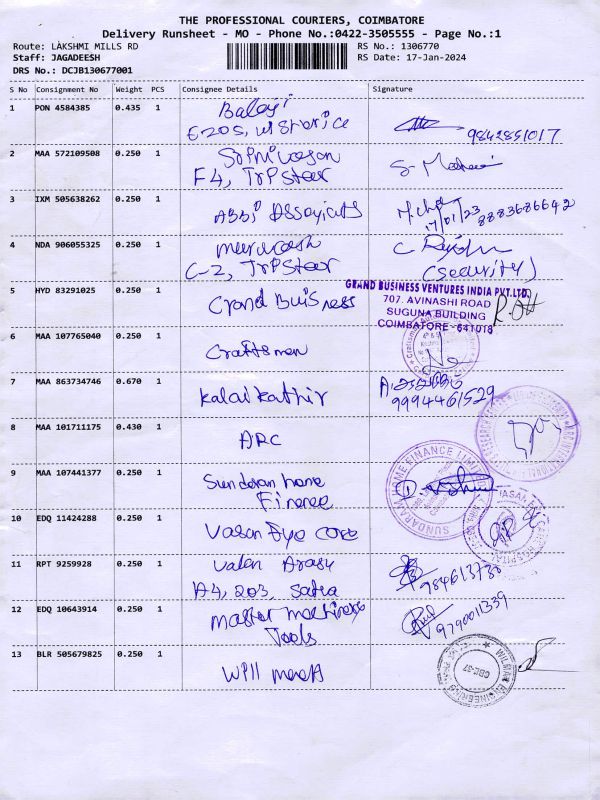 THE PROFESSIONAL COURIERS, COIMBATORE
Delivery Runsheet - MO - Phone No.:0422-3505555 - Page No.:1
Route: LAKSHMI MILLS RD
RS No.: 1306770
Staff: JAGADEESH
RS Date: 17-Jan-2024
DRS No.: DCJB130677001
S No Consignment No Weight PCS Consignee Details Signature
1 PON 4584385 0.435 1 Balaji
9842851017
2 MAA 572109508 0.250 1
F4, TrP Star
3 IXM 505638262 0.250 1
17/01/23 8883686642
4 NDA 906055325 0.250 1
C-2, TrP Star
(Security)
5 HYD 83291025 0.250 1 Grand Buisness
GRAND BUSINESS VENTURES INDIA PVT.LTD.
707. AVINASHI ROAD
SUGUNA BUILDING
COIMBATORE - 641018
6 MAA 107765040 0.250 1 Craftsmen
7 MAA 863734746 0.670 1 Kalaikathir
9994461529
8 MAA 101711175 0.430 1 ARC
9 MAA 107441377 0.250 1 Sundaran home
Finance
SUNDARAM HOME FINANCE LIMITED
10 EDQ 11424288 0.250 1 Vasan Eye care
11 RPT 9259928 0.250 1
A4, 203,
12 EDQ 10643914 0.250 1 Master
Tools
9790011339
13 BLR 505679825 0.250 1
CBE-37